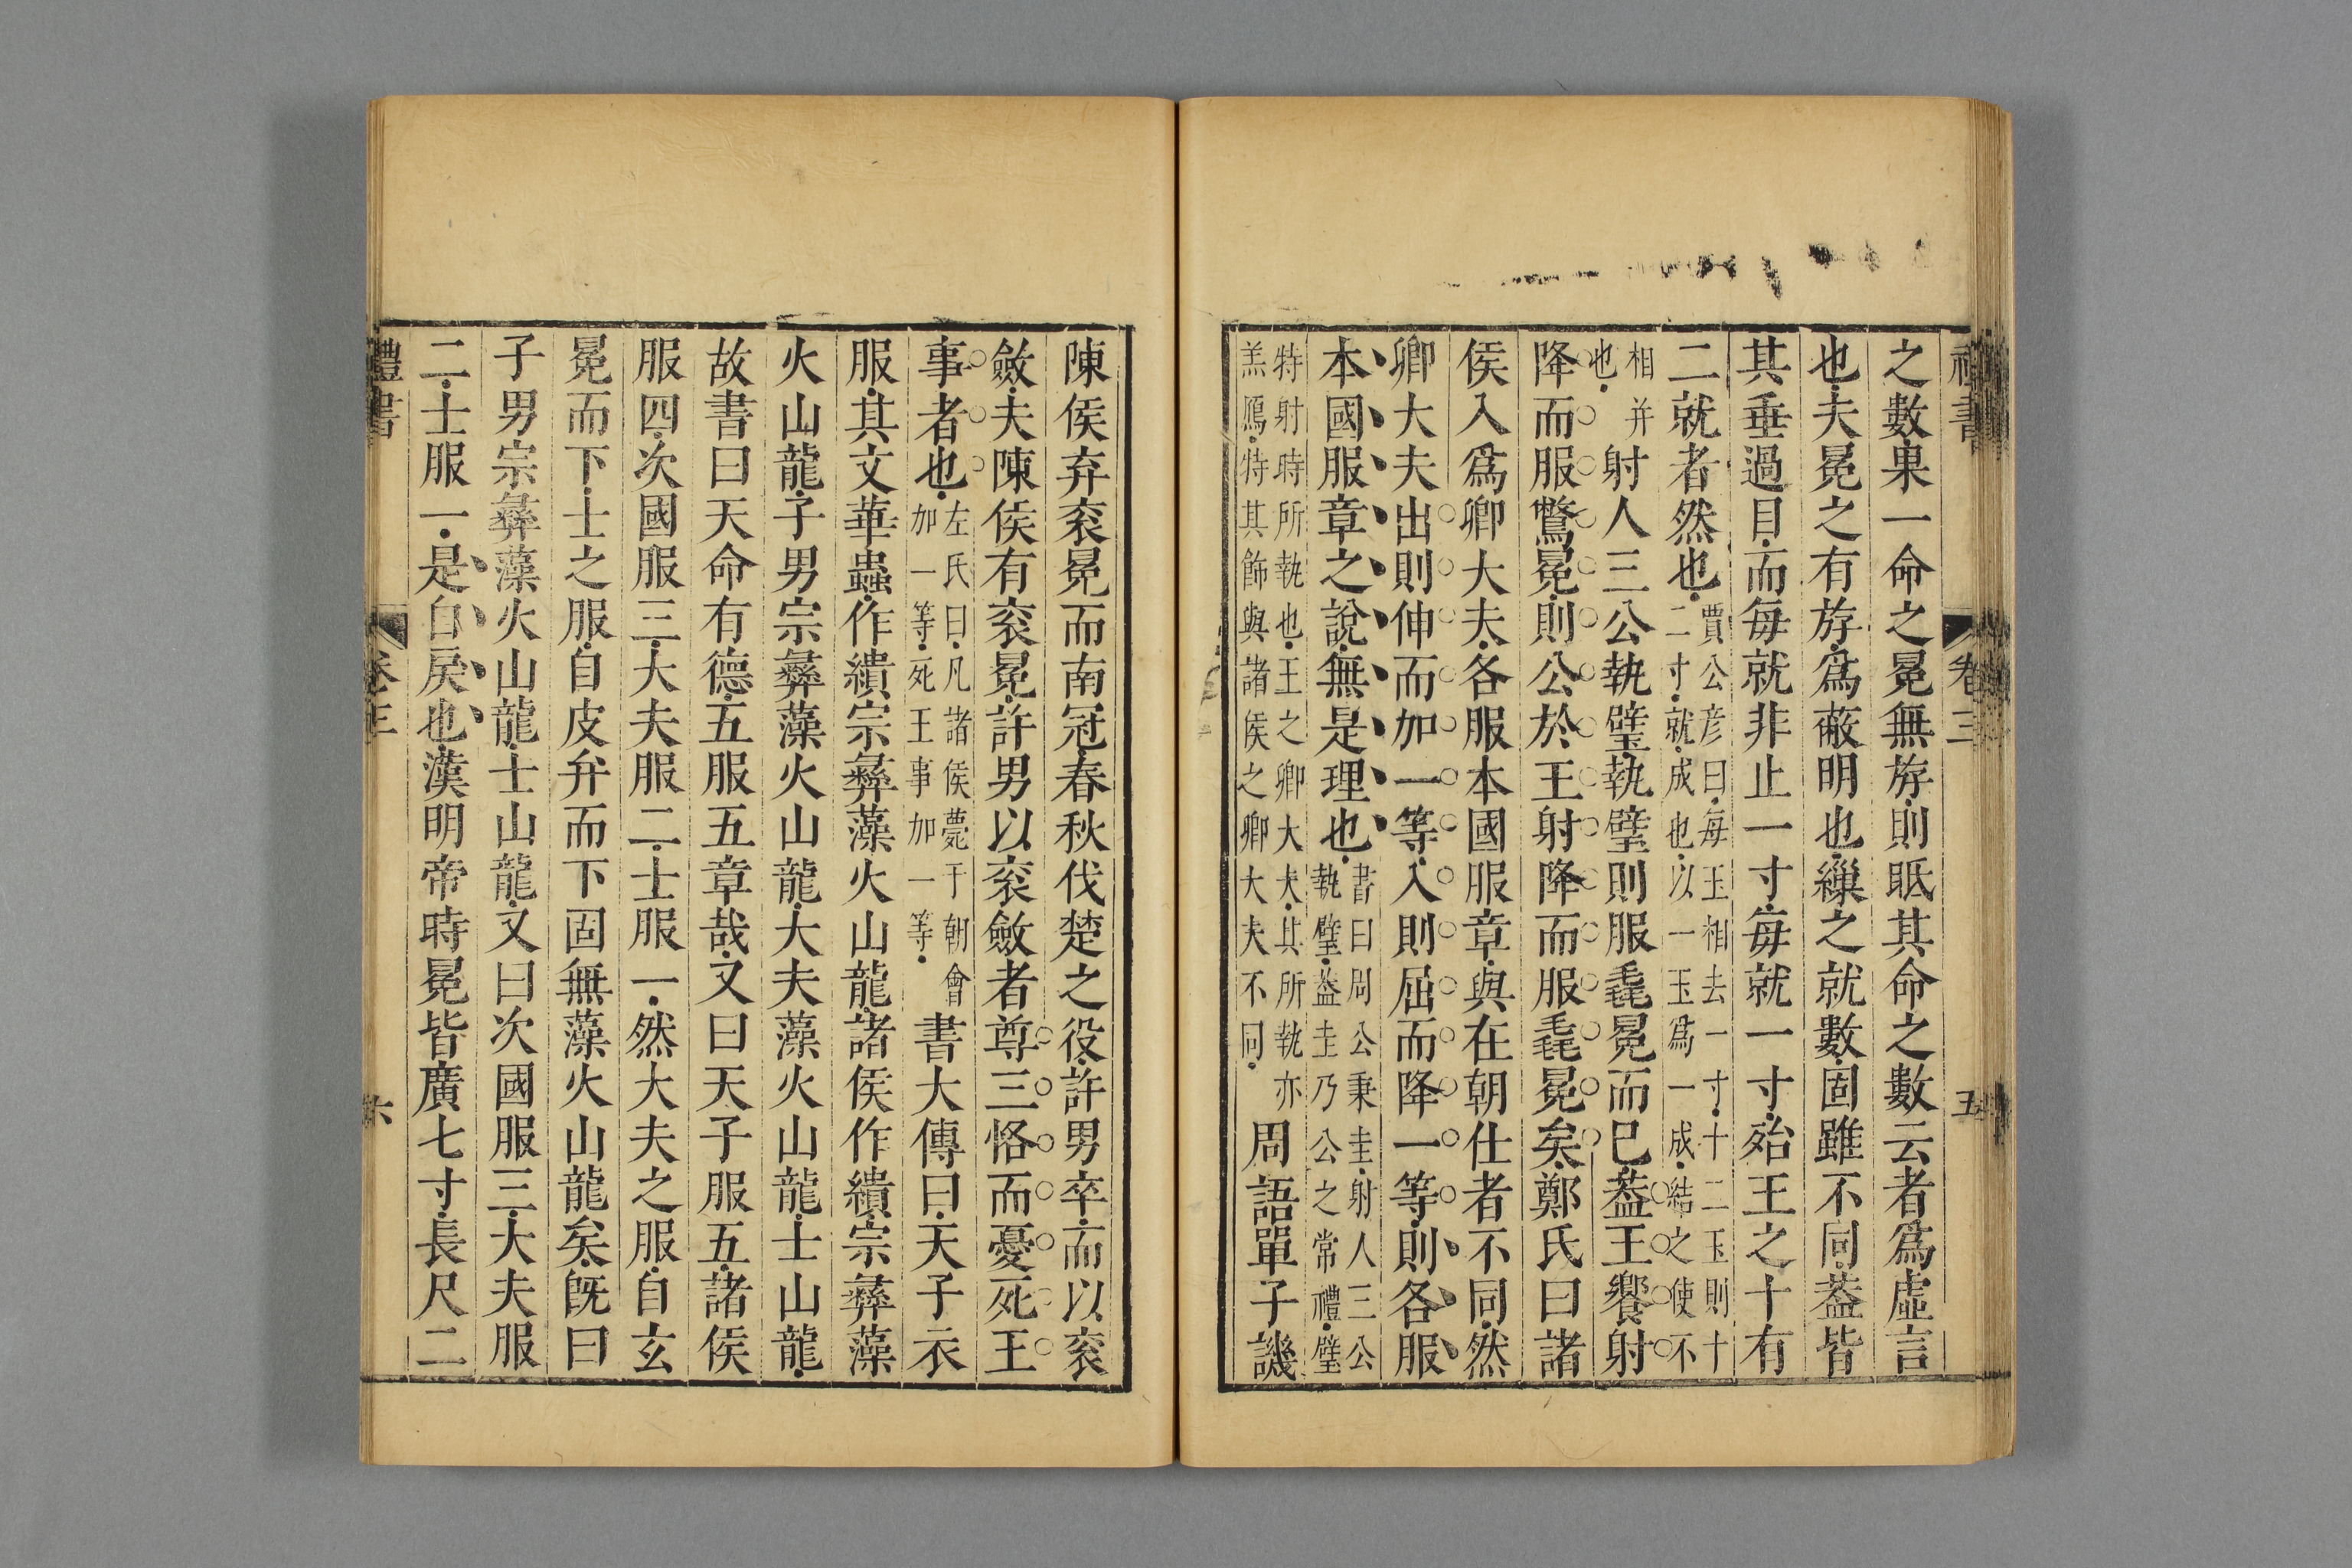 禮書 卷三 五
之數果一命之冕無斿則眂其命之數云者爲虛言
也夫冕之有斿爲蔽明也繅之就數固雖不同葢皆
其垂過目而每就非止一寸每就一寸殆王之十有
二就者然也賈公彦曰每玉相去一寸十二玉則十
二寸就成也以一玉爲一成結之使不
相并
也射人三公執璧執璧則服毳冕而已葢王饗射
降而服驚冕則公於王射降而服毳冕矣鄭氏曰諸
侯入爲卿大夫各服本國服章與在朝仕者不同然
卿大夫出則伸而加一等入則屈而降一等則各服
本國服章之說無是理也書曰周公秉圭射人三公
執璧葢圭乃公之常禮璧
特射時所執也王之卿大夫其所執亦
羔鴈特其飾與諸侯之卿大夫不同周語單子譏
陳侯弃衮冕而南冠春秋伐楚之役許男卒而以衮
斂夫陳侯有衮冕許男以衮斂者尊三恪而憂死王
事者也左氏曰凡諸侯薨于朝會
加一等死王事加一等書大傳曰天子衣
服其文華蟲作繢宗彝藻火山龍諸侯作繢宗彝藻
火山龍子男宗彝藻火山龍大夫藻火山龍士山龍
故書曰天命有德五服五章哉又曰天子服五諸侯
服四次國服三大夫服二士服一然大夫之服自玄
冕而下士之服自皮弁而下固無藻火山龍矣旣曰
子男宗彝藻火山龍士山龍又曰次國服三大夫服
二士服一是自戾也漢明帝時冕皆廣七寸長尺二
禮書 卷三 六